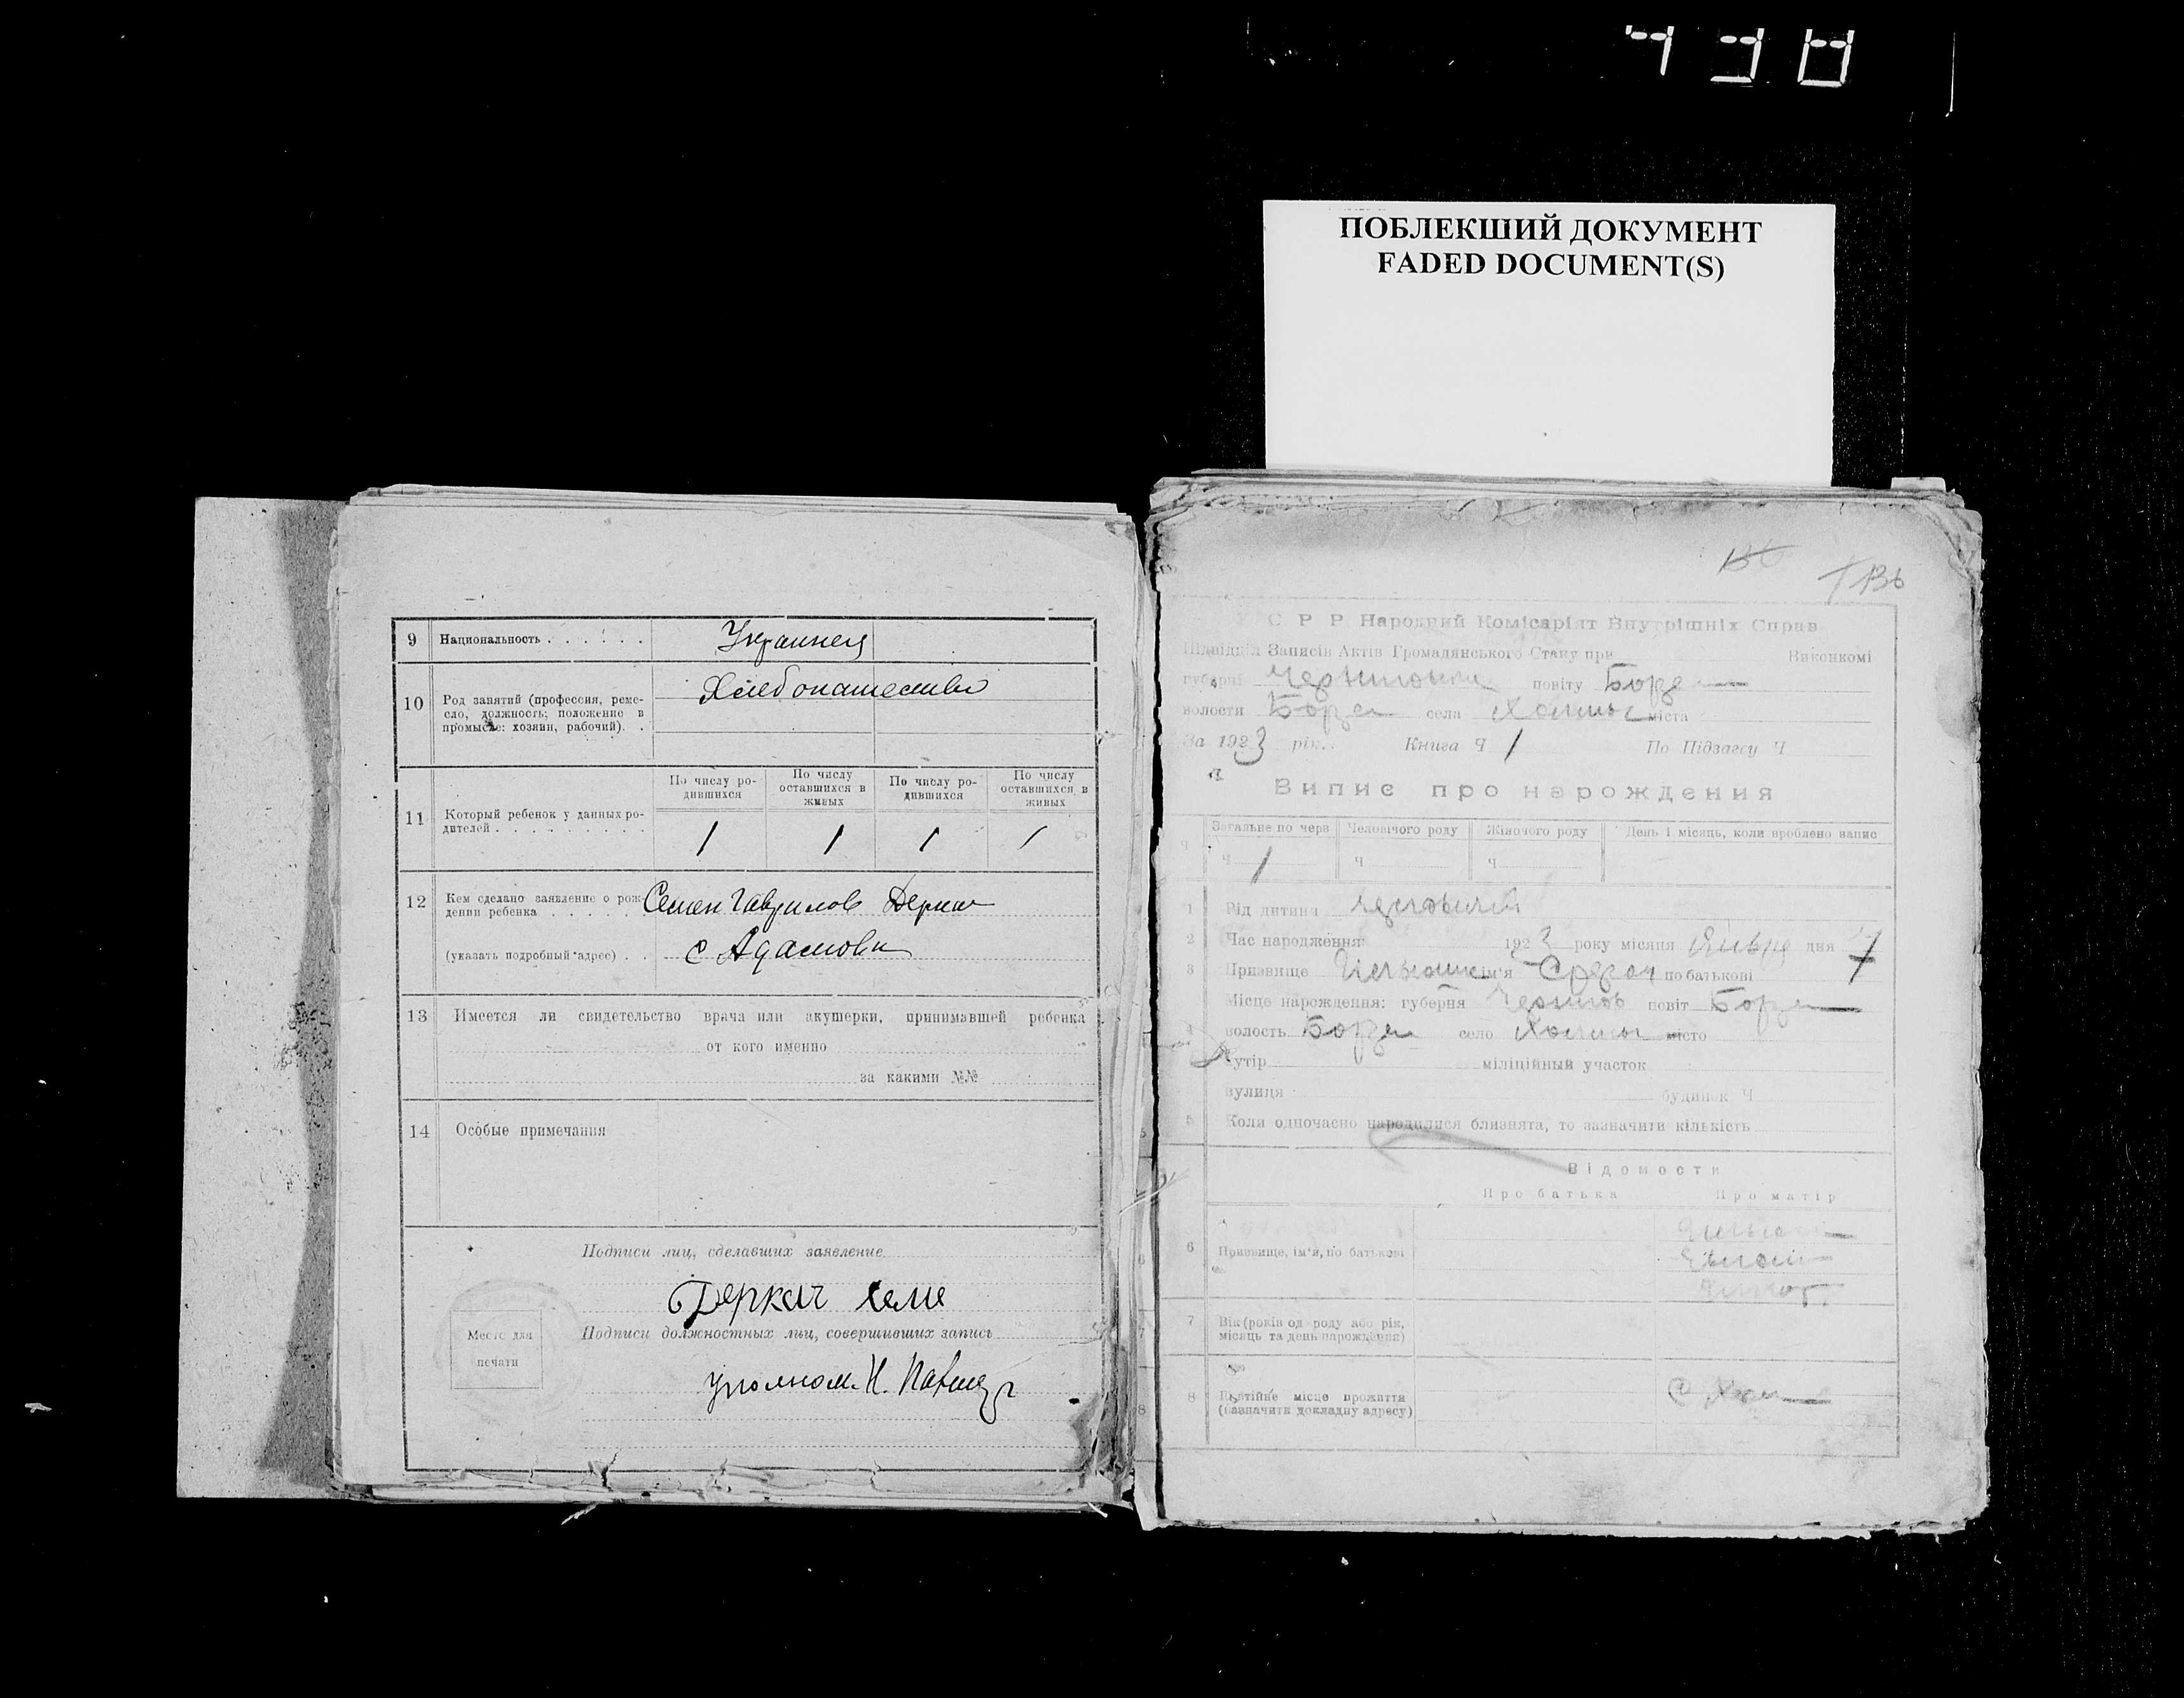 438
ПОБЛЕКШИЙ ДОКУМЕНТ
FADED DOCUMENT(S)
9 Национальность
10 Род занятий (профессия, реме-
сло, должность; положение в
промысле: хозяин, рабочий).
Хлебопашество
11 Который ребенок у данных ро-
дителей
По числу ро-
дившихся
По числу
оставшихся в
живых
По числу ро-
дившихся
По числу
оставшихся в
живых
1 1 1 1
12 Кем сделано заявление о рож-
дении ребенка Семен Гаврилов Деркач
(указать подробный адрес) с Адамовка
13 Имеется ли свидетельство врача или акушерки, принимавшей ребенка
от кого именно
за какими №№
14 Особые примечания
Подписи лиц, сделавших заявление
Деркач Семе
Подписи должностных лиц, совершивших запись
Место для
печати
уполном. Н.
136
С. Р. Р. Народний Комісаріят Внутрішніх Справ
Підвідділ Записів Актів Громадянського Стану при Виконкомі
губерні повіту Борзен
волости Борзен села Холмы міста
За 1923 рік. Книга Ч 1 По Підзагсу Ч
Випис про народження
Загальне по черв Чоловічого роду Жіночого роду День і місяць, коли зроблено запис
Ч 1 Ч Ч
1 Рід дитини
2 Час народження 1923 року місяця Января дня 7
3 Призвище ім'я по батькові
Місце нарождення: губерня Чернигов повіт Борзен
4 волость Борзен село Холмы місто
Хутір міліційный участок
вулиця будинок Ч
5 Коли одночасно народилися близнята, то зазначити кількість
Відомости
Про батька Про матір
6 Призвище, ім'я, по батькові
7 Вік (років од роду або рік,
місяць та день нарождення)
8 Постійне місце прожиття
(зазначити докладну адресу)
с